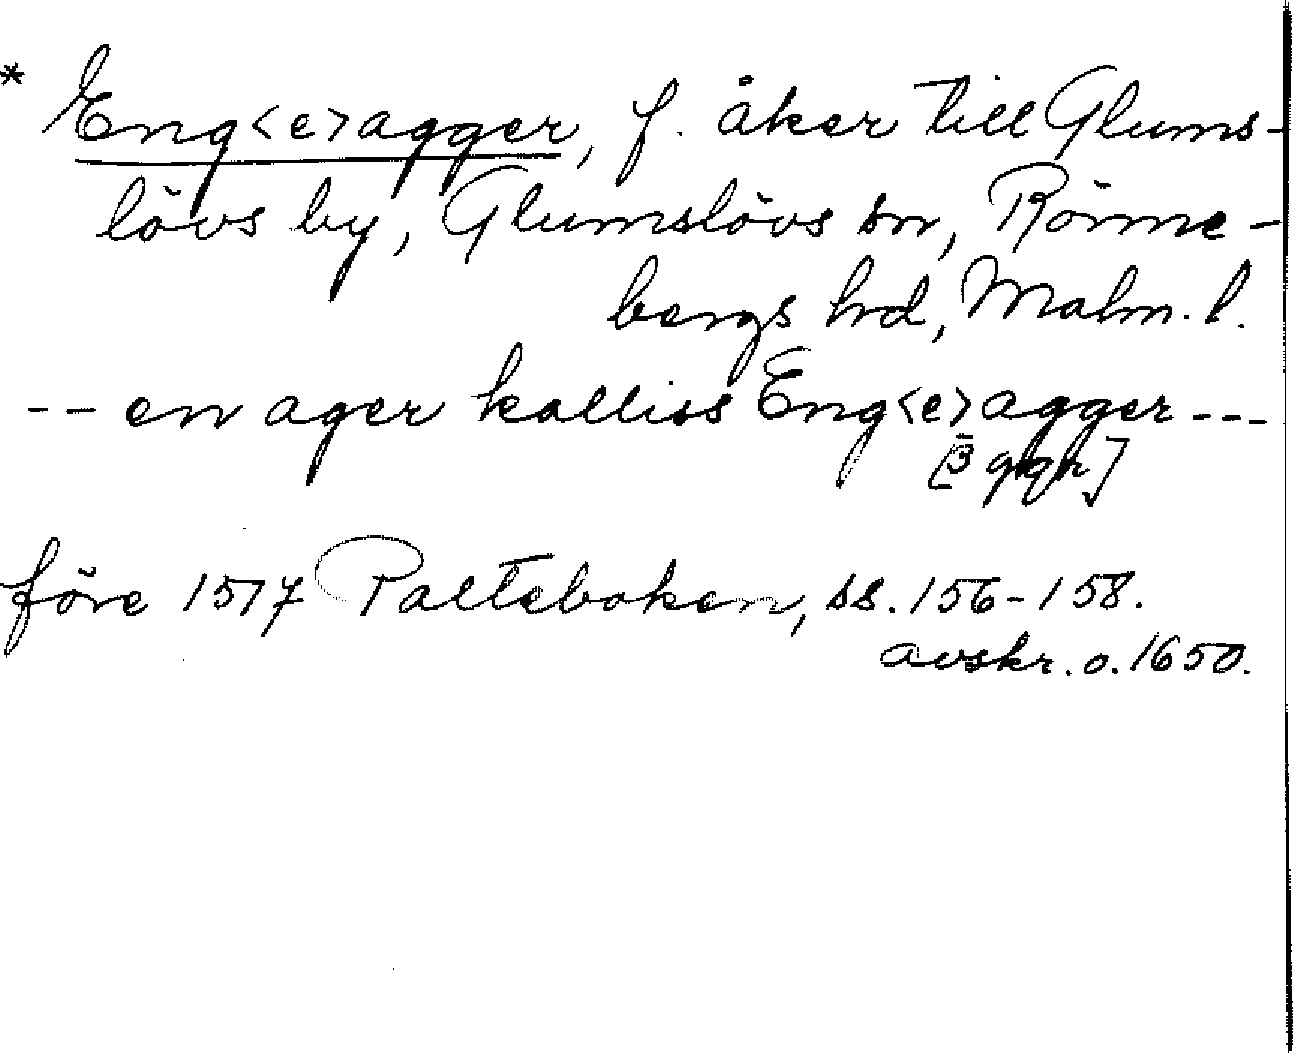 * Eng<e>agger, f. åker till Glums-
lövs by, Glumslövs sn, Rönne-
bergs hrd, Malm. l.
-- en ager kalliss Eng<e>agger ---
[3 ggr]
före 1517 Palteboken, ss. 156-158.
avskr. o. 1650.